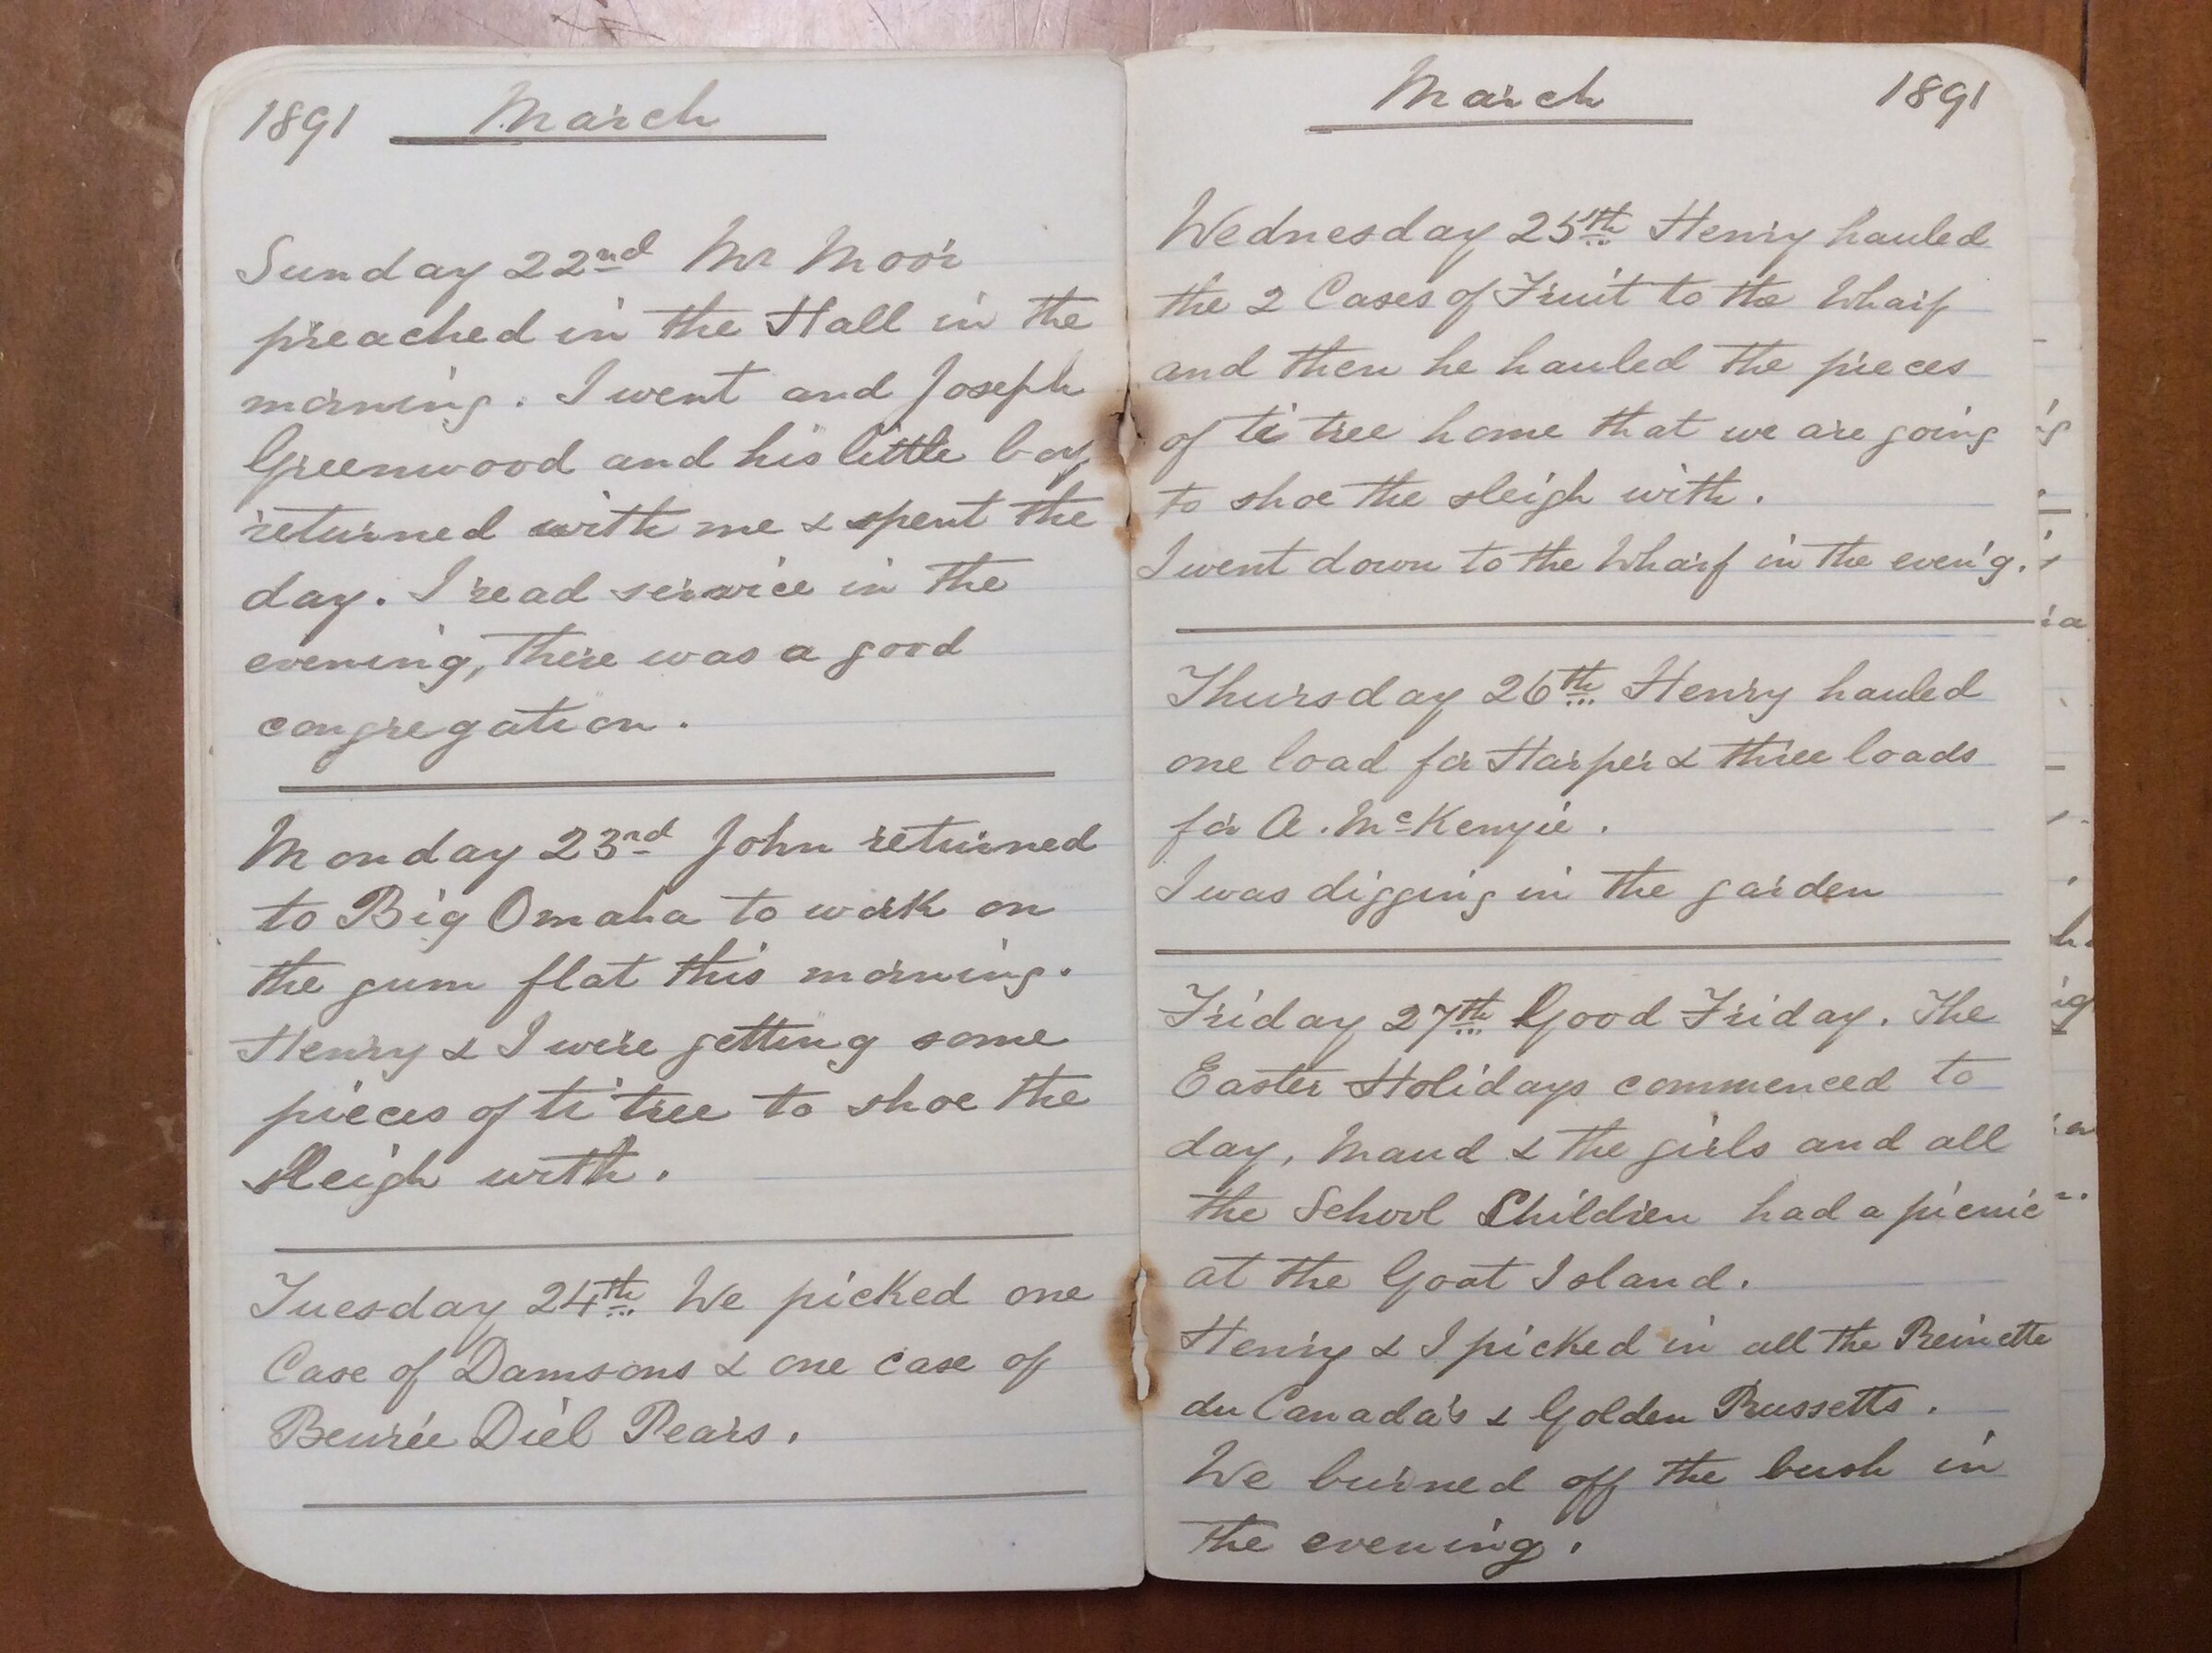 1891 March
Sunday 22nd Mr Moor
preached in the Hall in the
morning. I went and Joseph
Greenwood and his little boy
returned with me & spent the
day. I read service in the
evening, there was a good
congregation.
Monday 23rd John returned
to Big Omaha to work on
the gum flat this morning.
Henry & I were getting some
pieces of ti tree to shoe the
sleigh with.
Tuesday 24th We picked one
Case of Damsons & one case of
Beurée Diel Pears.
March 1891
Wednesday 25th Henry hauled
the 2 Cases of Fruit to the Wharf
and then he hauled the pieces
of ti tree home that we are going
to shoe the sleigh with.
I went down to the Wharf in the even'g.
Thursday 26th Henry hauled
one load for Harper & three loads
for A. McKenzie.
I was digging in the garden
Friday 27th Good Friday. The
Easter Holidays commenced to
day, Maud & the girls and all
the School Children had a picnic
at the Goat Island.
Henry & I picked in all the Reinette
du Canada's & Golden Russetts.
We burned off the bush in
the evening.